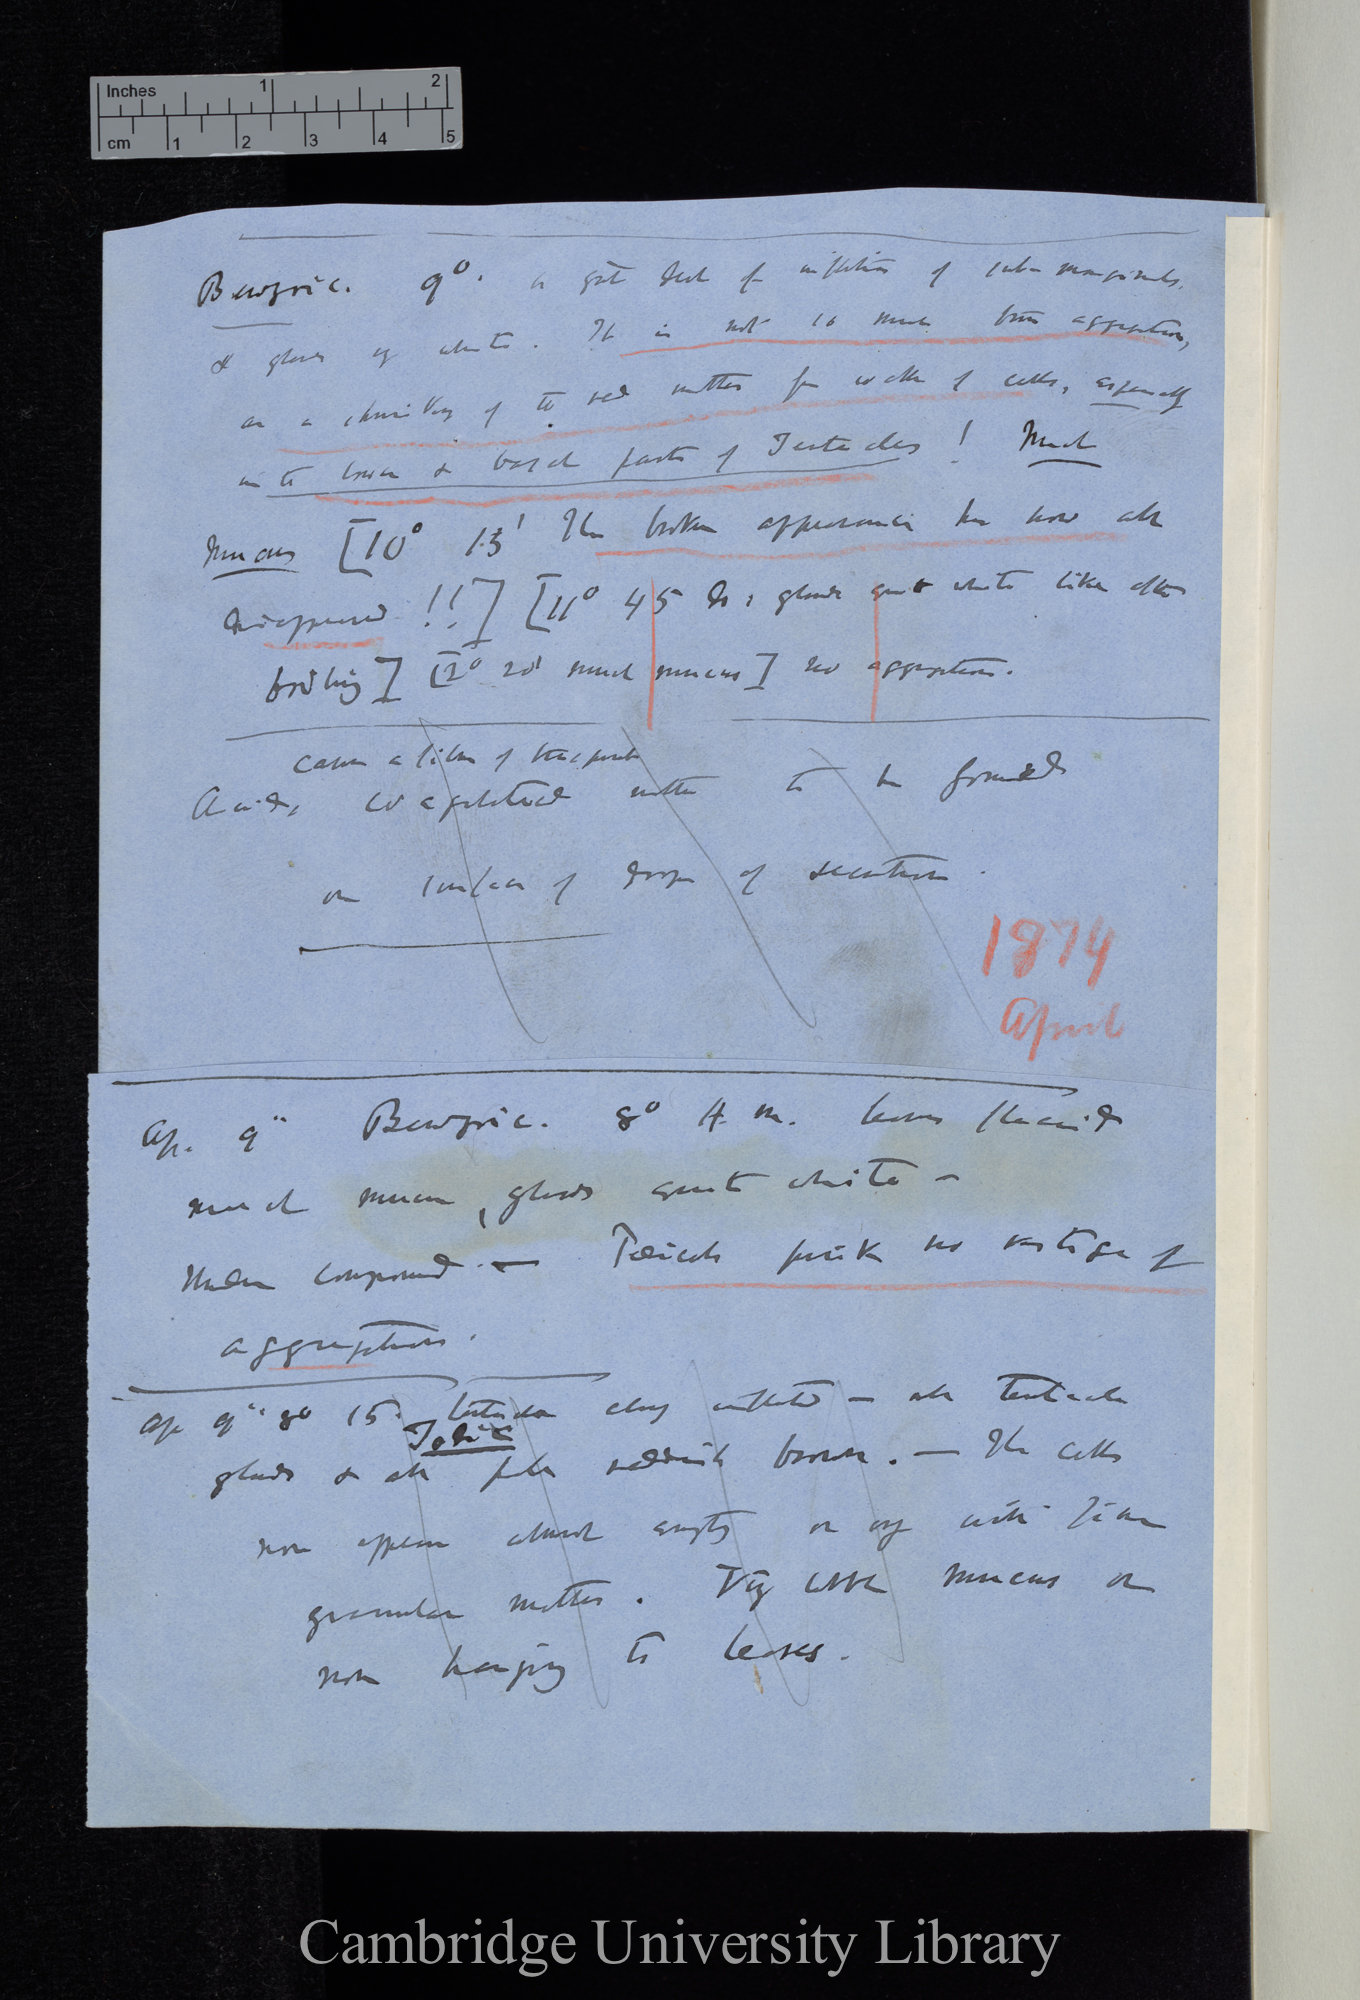 Inches 1 2
cm 1 2 3 4 5
Benzoic. 9°. a great deal of inflection of sub-marginals,
& glands of white. It is not so much true aggregation,
as a shrinking of the red matter from walls of cells, especially
in the lower & basal parts of Tentacles! Much
mucus [10° 15' The broken appearance has now all
disappeared!!] [11° 45 do; glands quite white like after
boiling] [2° 20' much mucus] no aggregation.
cause a film of
Acids, coagulated matter to be formed
on surface of drops of secretion.
1874
April
Ap. 9th Benzoic. 8° A.m. leaves flaccid
much mucus, glands quite white –
Under compound — Pedicels pink no vestige of
aggregation.
Ap 9th 8° 15. tentacles inflected — all tentacle
Iodic
glands & all reddish brown. — The cells
now appear almost empty or only with
granular matter. mucus on
now hanging to leaves.
Cambridge University Library